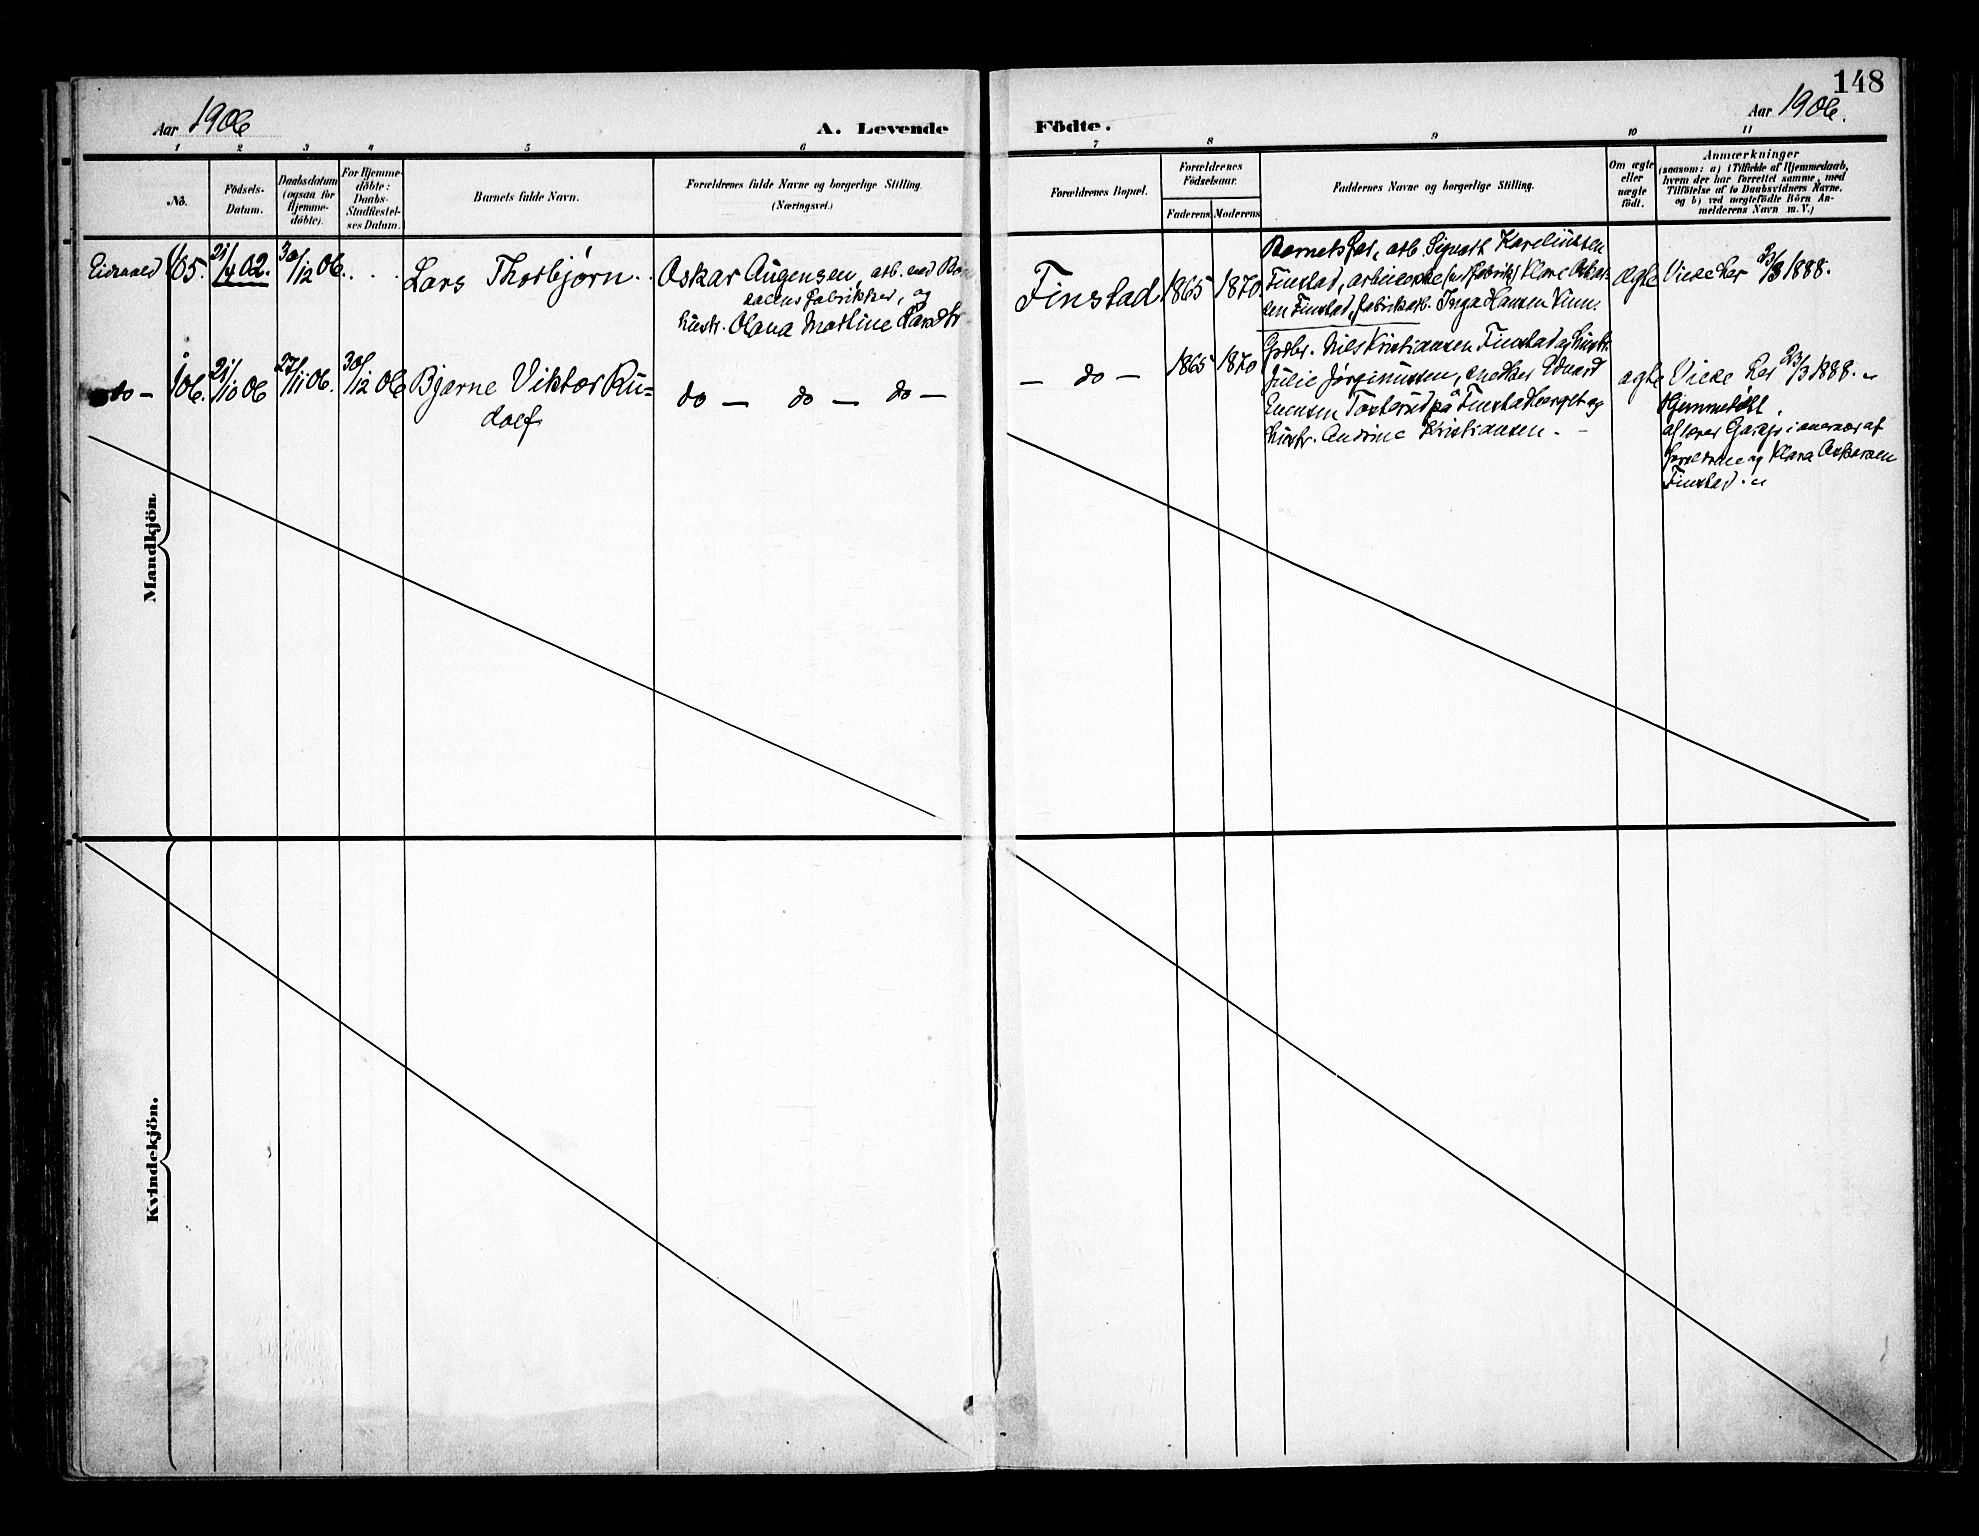 148
Aar 1906
A. Levende
Födte.
Aar 1906.
1 2 3 4 5 6 7 8 9 10 11
No.
Födsels-
Datum.
Daabsdatum
(ogsaa for
Hjemme-
döbte).
For Hjemme-
döbte:
Daabs-
Stadfæstel-
ses Datum.
Barnets fulde Navn.
Forældrenes fulde Navne og borgerlige Stilling.
(Næringsvei.)
Forældrenes Bopæl.
Forældrenes
Födselsaar.
Faderens Moderens
Faddernes Navne og borgerlige Stilling.
Om ægte
eller
uægte
födt.
Anmærkninger
(saasom: a) i Tilfælde af Hjemmedaab,
hvem der har forrettet samme, med
Tilföielse af to Daabsvidners Navne,
og b) ved uægtefödte Börn An-
melderens Navn m. V.)
Mandkjön.
Eidsvold 105. 21/4 02. 30/12 06. . .
Lars Thorbjørn.
Oskar Augensen, arb. ved
fabrikker, og
hustr. Olava Martine
Finstad 1865 1870
Barnets far, arb. Sigvart Karelinssen
Finstad, arbeiderske
Finstad, fabrikarb. Inga Hansen
ægte
Viede her 23/3 1888.
do — 106. 21/10 06 27/11 06. 30/12 06
Bjarne Viktor Ru-
dolf
do — do — do —
— do — 1865 1870
Grdbr. Nils Kristiansen Finstad og hustr.
Julie Jørginussen, snedker Edvard
Evensen på Finstadberget og
hustr. Andrine Kristiansen. —
ægte
Viede her 23/3 1888.
Hjemmedøbt
af lærer i nærvær af
forældrene og Klara Oskarsen
Finstad.
Kvindekjön.